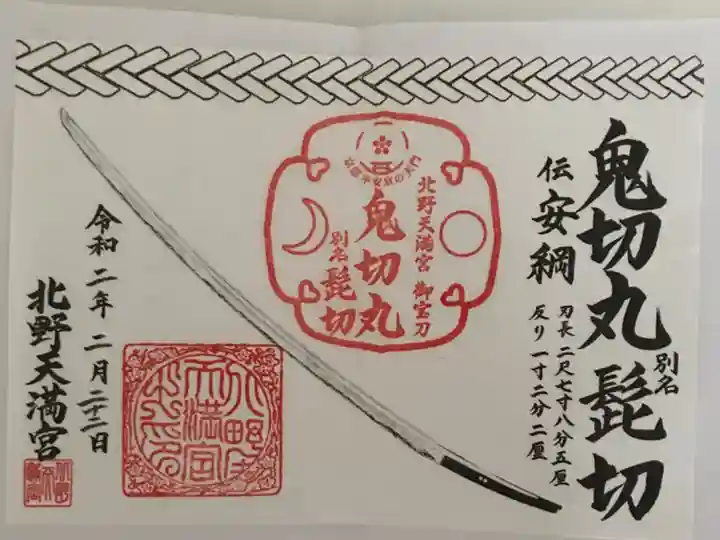 鬼切丸 別名 髭切
伝 安綱
刃長 二尺七寸八分五厘
反り 一寸二分二厘
北野天満宮 御宝刀
鬼切丸
別名 髭切
令和二年 二月二十二日
北野天満宮